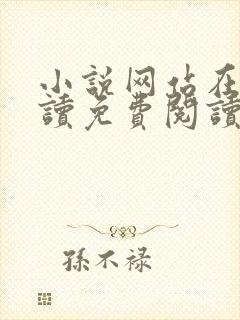 小説网站在
讀免費閱讀
孫不禄